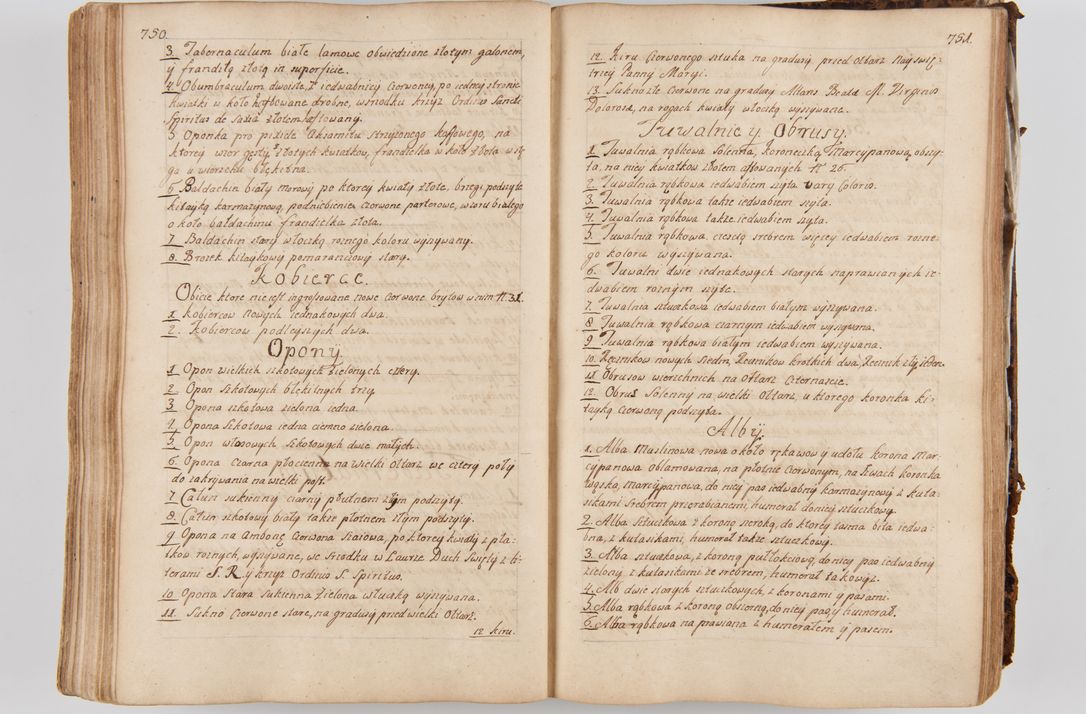 750.
3. Tabernaculum białe lamowe obwiedzione złotym galonem,
y frandzlą złotą in superficie.
4. Obumbraculum dwoiste, z iedwabnicy czerwoney, po iedney stronie
kwiatki w koło haftowane drobne, w srzodku krzyż Ordinis Sancti
Spiritus de Saxia złotem haftowany.
5. Oponka pro pixide Axamitu strzyzonego kaffowego, na
ktorey wzor gęsty złotych kwiatków, frandzelka w koło złota wstę-
ga u wierzchu błękitna.
6. Baldachin biały morowy po ktorey kwiaty złote, brzegi podszyte
kitayką karmazynową, podniebienie czerwone parterowe, wzoru białego
o koło baldachinu frandzelka złota.
7. Baldachin stary włoczką roznego koloru wyszywany.
8. Brozek kitaykowy pomaranczowy stary.
Kobierce.
Obicie ktore nie iest ingrossowane nowe czerwone brytow w nim N. 31.
1. Kobiercow nowych iednakowych dwa.
2. Kobiercow podleyszych dwa.
Opony.
1. Opon wielkich szkotowych zielonych cztery.
2. Opon szkotowych błękitnych trzy.
3. Opona szkotowa zielona iedna.
4. Opona Szkotowa iedna ciemno zielona.
5. Opon włosowych szkotowych dwie małych.
6. Opona czarna płocienna na wielki Ołtarz we cztery poły
do zakrywania na wielki post.
7. Całun sukienny czarny płutnem złym podszyty.
8. Całun szkotowy biały także płotnem złym podszyty.
9. Opona na Ambonę czerwona Szaiowa, po ktorey kwiaty z pła-
tkow roznych, wyszywane, we Srzodku w Laurze Duch Swięty z li-
terami S. R. y krzyż Ordinis S. Spiritus.
10. Opona Stara Sukienna zielona włuczką wyszywana.
11. Sukno czerwone stare, na gradusy przed wielki Ołtarz.
12. kiru.
751.
12. Kiru czerwonego sztuka na gradusy przed Ołtarz Nayswię-
trzey Panny Maryi.
13. Sukno złe czerwone na gradusy Altaris Beatæ M. Virginis
Dolorosæ, na rogach kwiaty włoczką wyszywane.
Tuwalnie y Obrusy.
1. Tuwalnia rąbkowa Solenna, koroneczką Marcypanową obszy-
ta, na niey kwiatkow złotem aftowanych N. 26.
2. Tuwalnia rąbkowa iedwabiem szyta vary Coloris.
3. Tuwalnia rąbkowa także iedwabiem szyta.
4. Tuwalnia rąbkowa także iedwabiem szyta.
5. Tuwalnia rąbkowa, częscią srebrem więcey iedwabiem rozne-
go koloru wyszywana.
6. Tuwalni dwie iednakowych starych naprawianych ie-
dwabiem roznym szyte.
7. Tuwalnia sztuczkowa iedwabiem białym wyszywana.
8. Tuwalnia rąbkowa czarnym iedwabiem wyszywana.
9. Tuwalnia rąbkowa białym iedwabiem wyszywana.
10. Ręcznikow nowych siedm, Ręcznikow krotkich dwa, Ręcznik zły ieden.
11. Obrusow wierzchnich na Ołtarz czternascie.
12. Obrus Solenny na wielki Ołtarz, u ktorego koronka ki-
tayką czerwoną podszyta.
Alby.
1. Alba Muslinowa nowa o koło rękawow y udołu korona Mar-
cypanowa oblamowana, na płotnie czerwonym, na szwach koronka
wąska, Marcypanowa, do niey pas iedwabny karmazynowy z kuta-
sikami srebrem przerabianemi, humerał doniey sztuczkowy.
2. Alba Sztuczkowa z koroną szeroką, do ktorey tasma biła iedwa-
bna, z kutasikami, humerał także sztuczkowy.
3. Alba sztuczkowa, z koroną pułłokciową, do niey pas iedwabny
zielony z kutasikami ze srebrem, humerał takowyż.
4. Alb dwie starych sztuczkowych, z koronami y pasami.
5. Alba rąbkowa z koroną obszerną, do niey pas y humerał.
6. Alba rąbkowa naprawiana z humerałem y pasem.